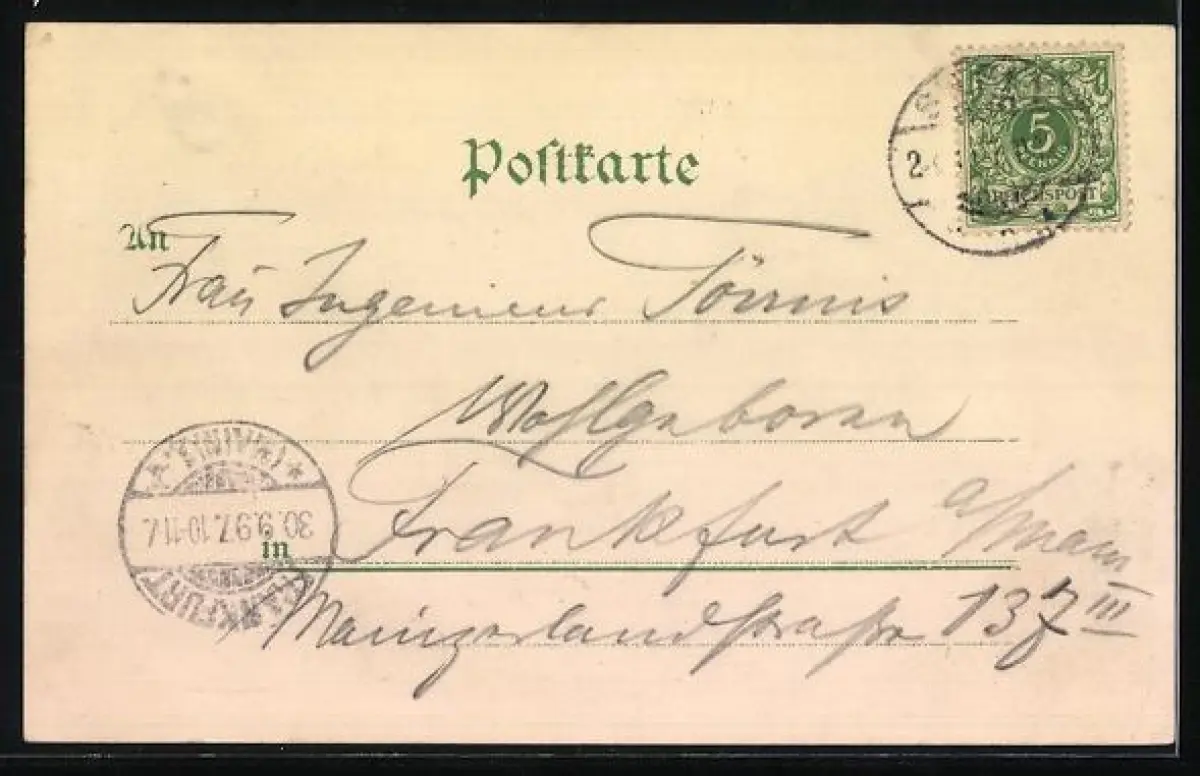 Postkarte
5
PFENNIG
REICHSPOST
An
Frau Ingenieur
Wohlgeboren
in Frankfurt a/Main
Mainzerlandstraße 137 III
FRANKFURT
30.9.97. 10-11
(MAIN)